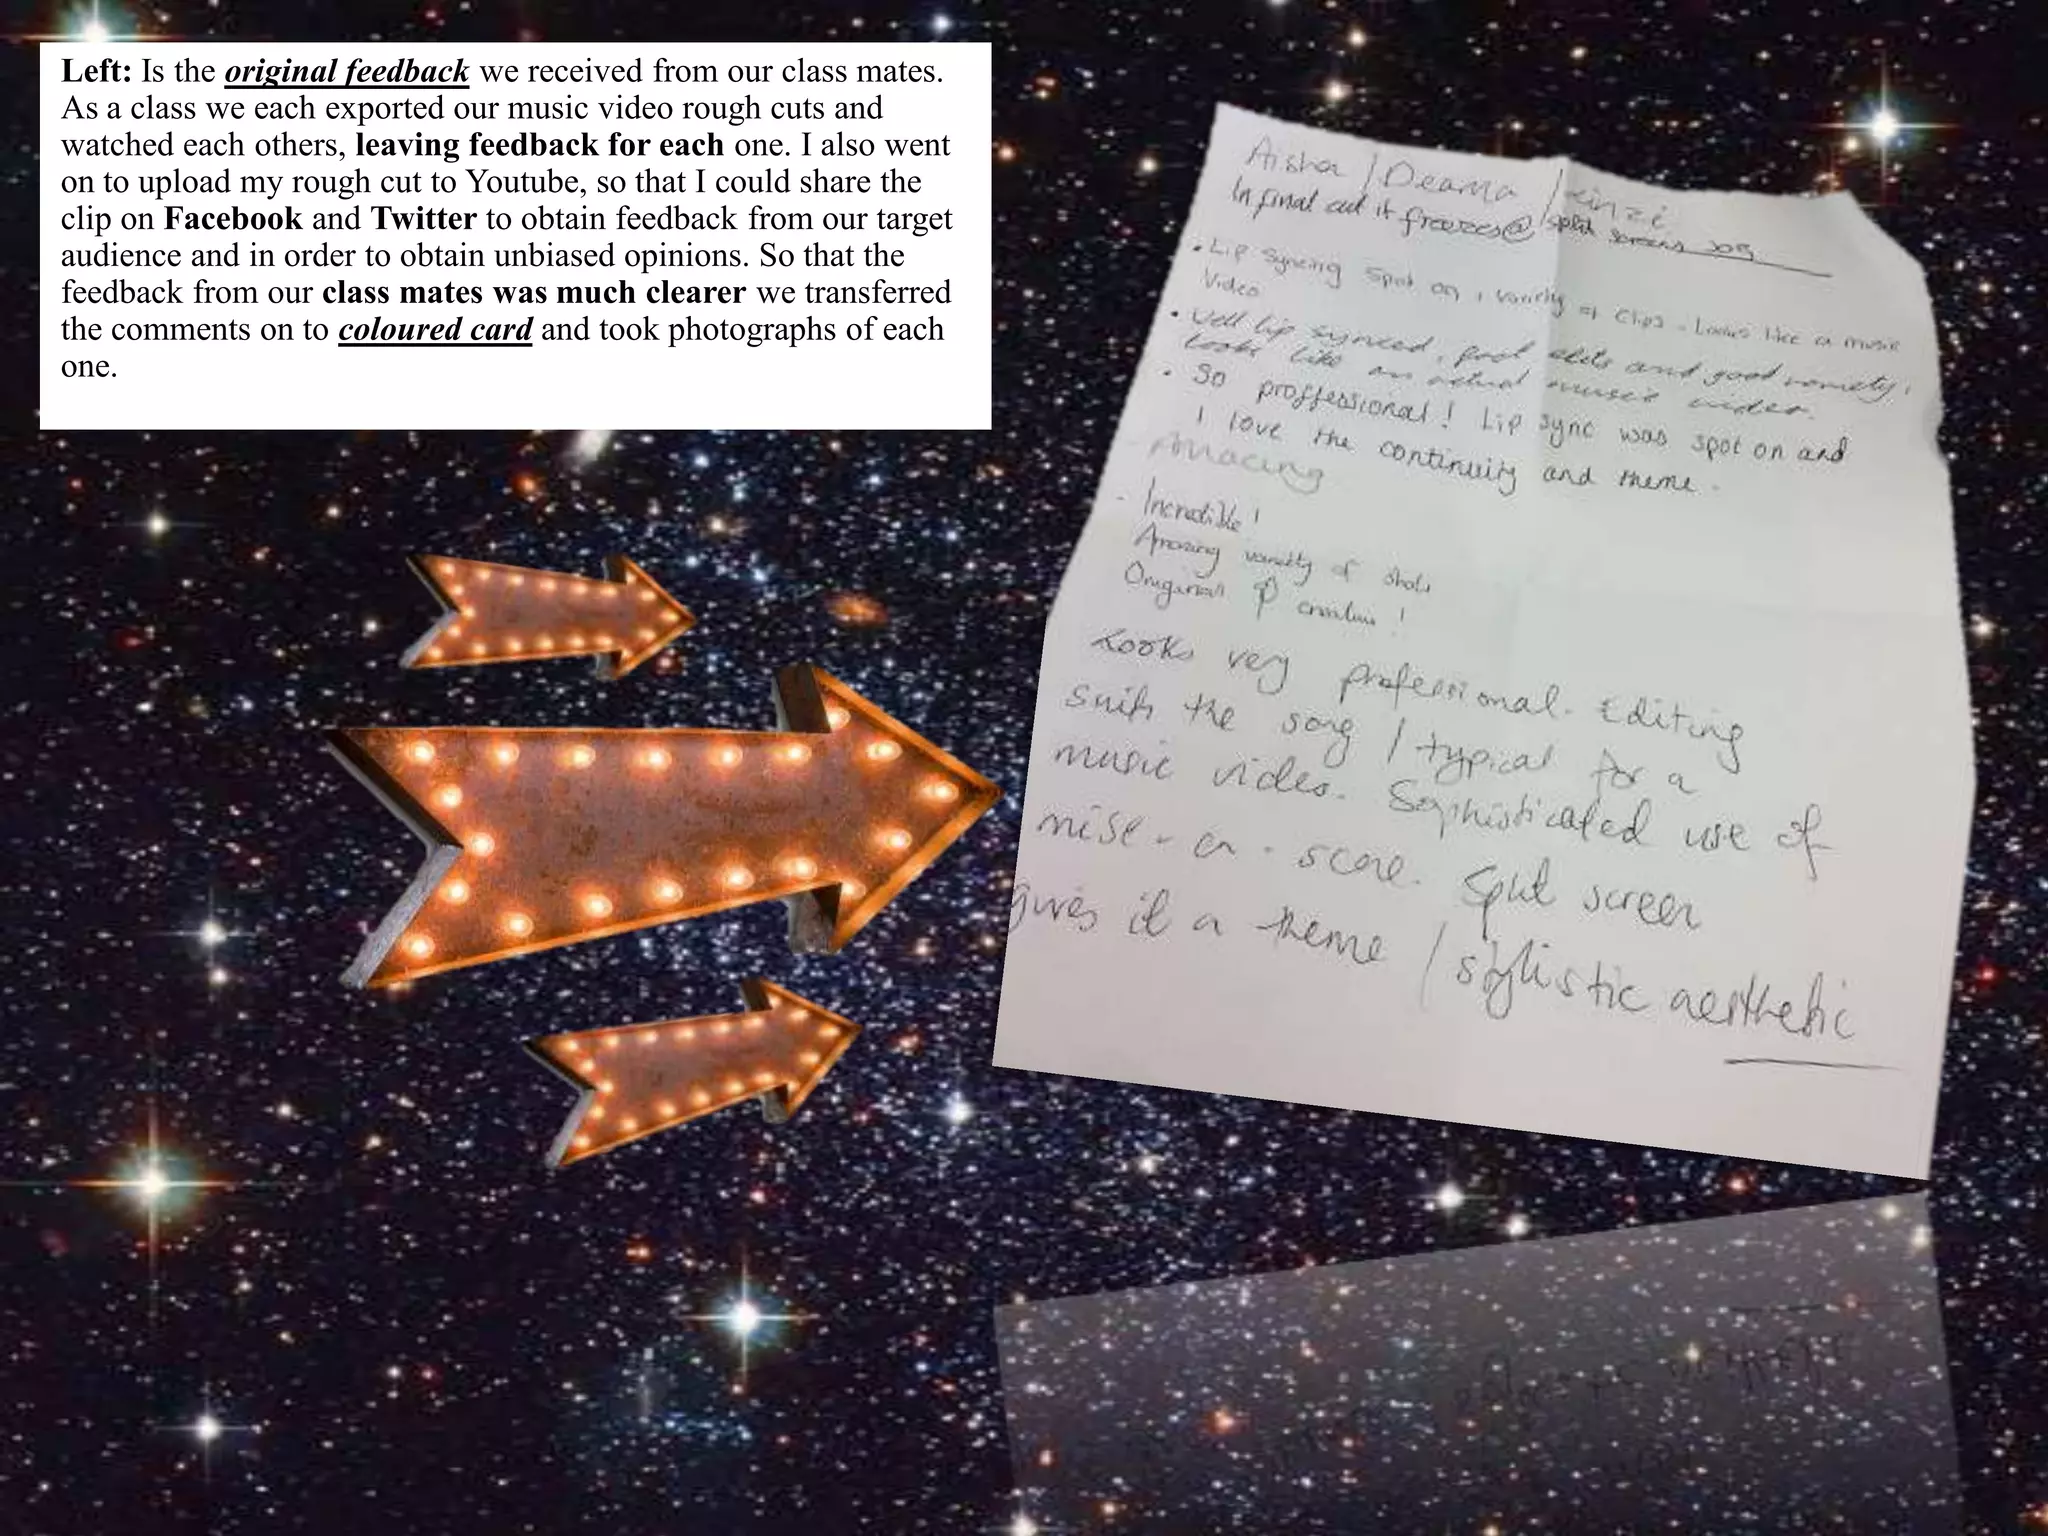 Left: Is the original feedback we received from our class mates.
As a class we each exported our music video rough cuts and
watched each others, leaving feedback for each one. I also went
on to upload my rough cut to Youtube, so that I could share the
clip on Facebook and Twitter to obtain feedback from our target
audience and in order to obtain unbiased opinions. So that the
feedback from our class mates was much clearer we transferred
the comments on to coloured card and took photographs of each
one.
Aisha / Deama /
In final cut it freezes @ split screens
• Lip syncing spot on, variety of clips - Looks like a music
video
• well lip synced, good edits and good variety,
looks like an actual music video.
• So proffessional! Lip sync was spot on and
I love the continuity and theme.
- Amazing
- Incredible!
Amazing variety of shots
Original & creative!
Looks very professional. Editing
suits the song / typical for a
music video. Sophisticated use of
mise-en-scene. Split screen
gives it a theme / stylistic aesthetic